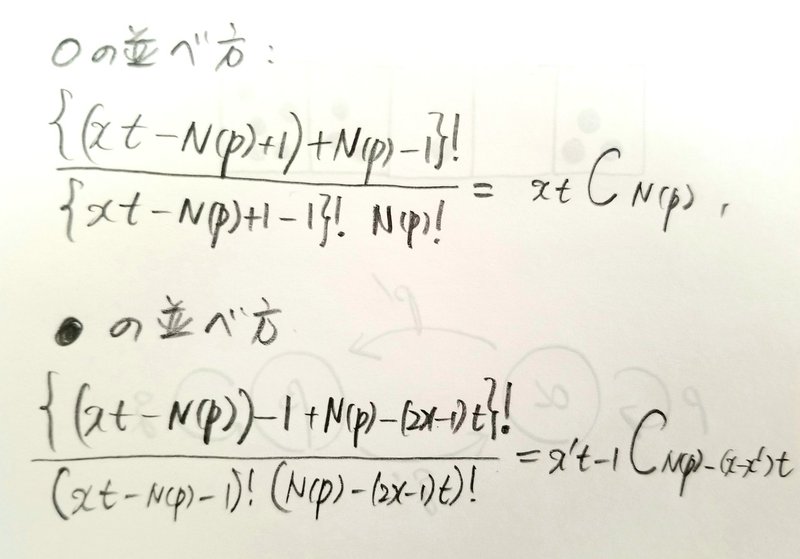 ○の並べ方:
{(xt-N(p)+1)+N(p)-1}! / {xt-N(p)+1-1}! N(p)! = xt C N(p),
●の並べ方
{(xt-N(p))-1+N(p)-(2x-1)t}! / (xt-N(p)-1)! (N(p)-(2x-1)t)! = x't-1 C N(p)-(x-x')t